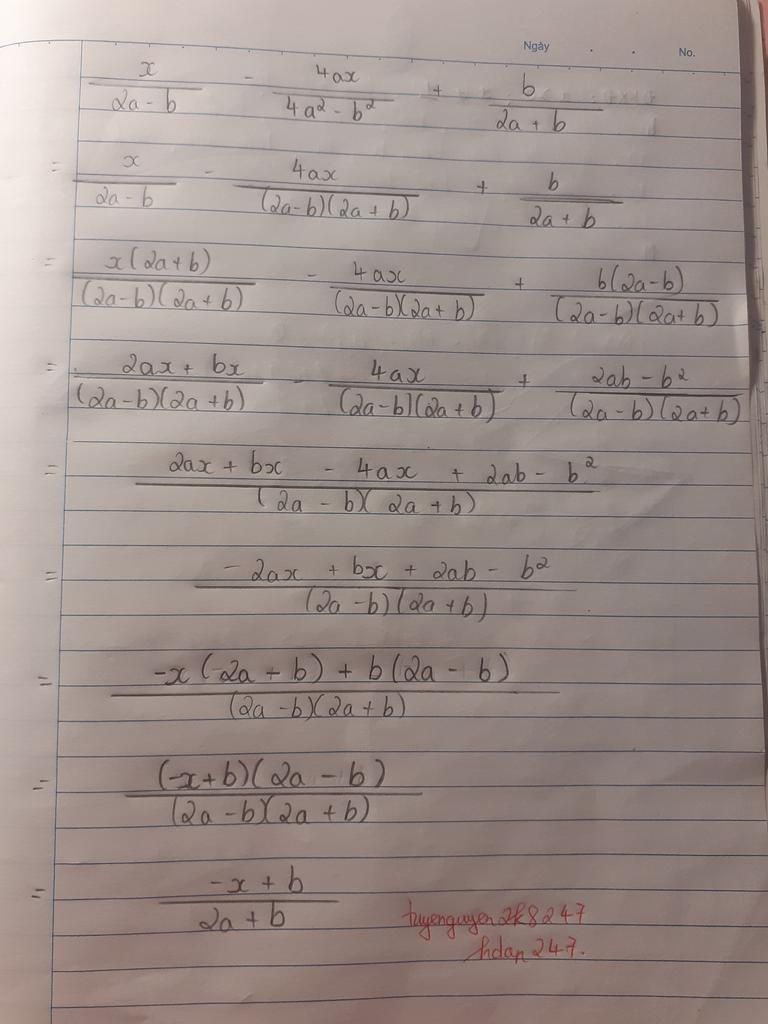 Ngày . . No.
x/(2a - b) - 4ax/(4a² - b²) + b/(2a + b)
= x/(2a - b) - 4ax/((2a-b)(2a + b)) + b/(2a + b)
= x(2a+b)/((2a-b)(2a + b)) - 4ax/((2a-b)(2a + b)) + b(2a-b)/((2a-b)(2a+b))
= (2ax + bx)/((2a-b)(2a+b)) - 4ax/((2a-b)(2a+b)) + (2ab - b²)/((2a-b)(2a+b))
= (2ax + bx - 4ax + 2ab - b²)/((2a - b)(2a + b))
= (-2ax + bx + 2ab - b²)/((2a-b)(2a+b))
= (-x(-2a + b) + b(2a - b))/((2a-b)(2a+b))
= (-x+b)(2a - b)/((2a-b)(2a+b))
= (-x + b)/(2a + b)
tuyenguyen2k8247
hdap247.